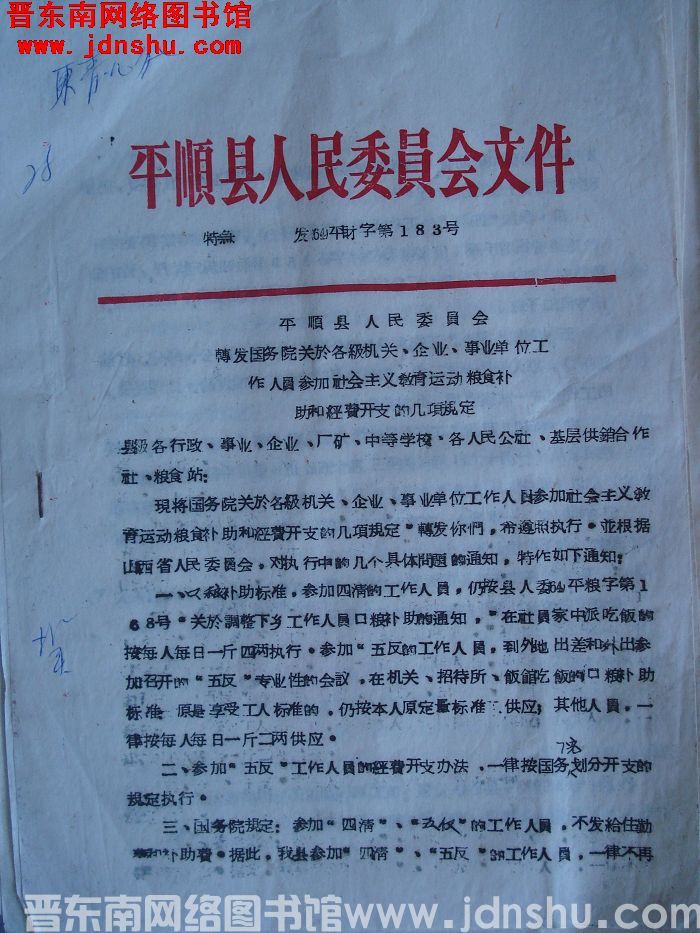 晋东南网络图书馆
www.jdnshu.com
28
平順县人民委員会文件
特急 发(64)平财字第183号
平順县人民委員会
轉发国务院关於各級机关、企业、事业单位工
作人員参加社会主义教育运动粮食补
助和經費开支的几項規定
县級各行政、事业、企业、厂矿、中等学校、各人民公社、基层供銷合作
社、粮食站:
現将国务院关於各級机关、企业、事业单位工作人員参加社会主义教
育运动粮食补助和經費开支的几項規定"轉发你們,希遵照执行。並根据
山西省人民委員会,对执行中的几个具体問題的通知,特作如下通知:
一、口粮补助标准,参加四清的工作人員,仍按县人委(64)平粮字第1
68号"关於調整下乡工作人員口粮补助的通知,"在社員家中派吃飯的
按每人每日一斤四两执行。参加"五反的工作人員,到外地出差和外出参
加召开的"五反"专业性的会議,在机关、招待所、飯館吃飯的口粮补助
标准 原是享受工人标准的,仍按本人原定量标准 供应;其他人員,一
律按每人每日一斤二两供应。
二、参加"五反"工作人員的經費开支办法,一律按国务院划分开支的
規定执行。
三、国务院規定:参加"四清"、"五反"的工作人員,不发給住勤
費和补助費。据此,我县参加"四清"、"五反"的工作人員,一律不再
晋东南网络图书馆www.jdnshu.com